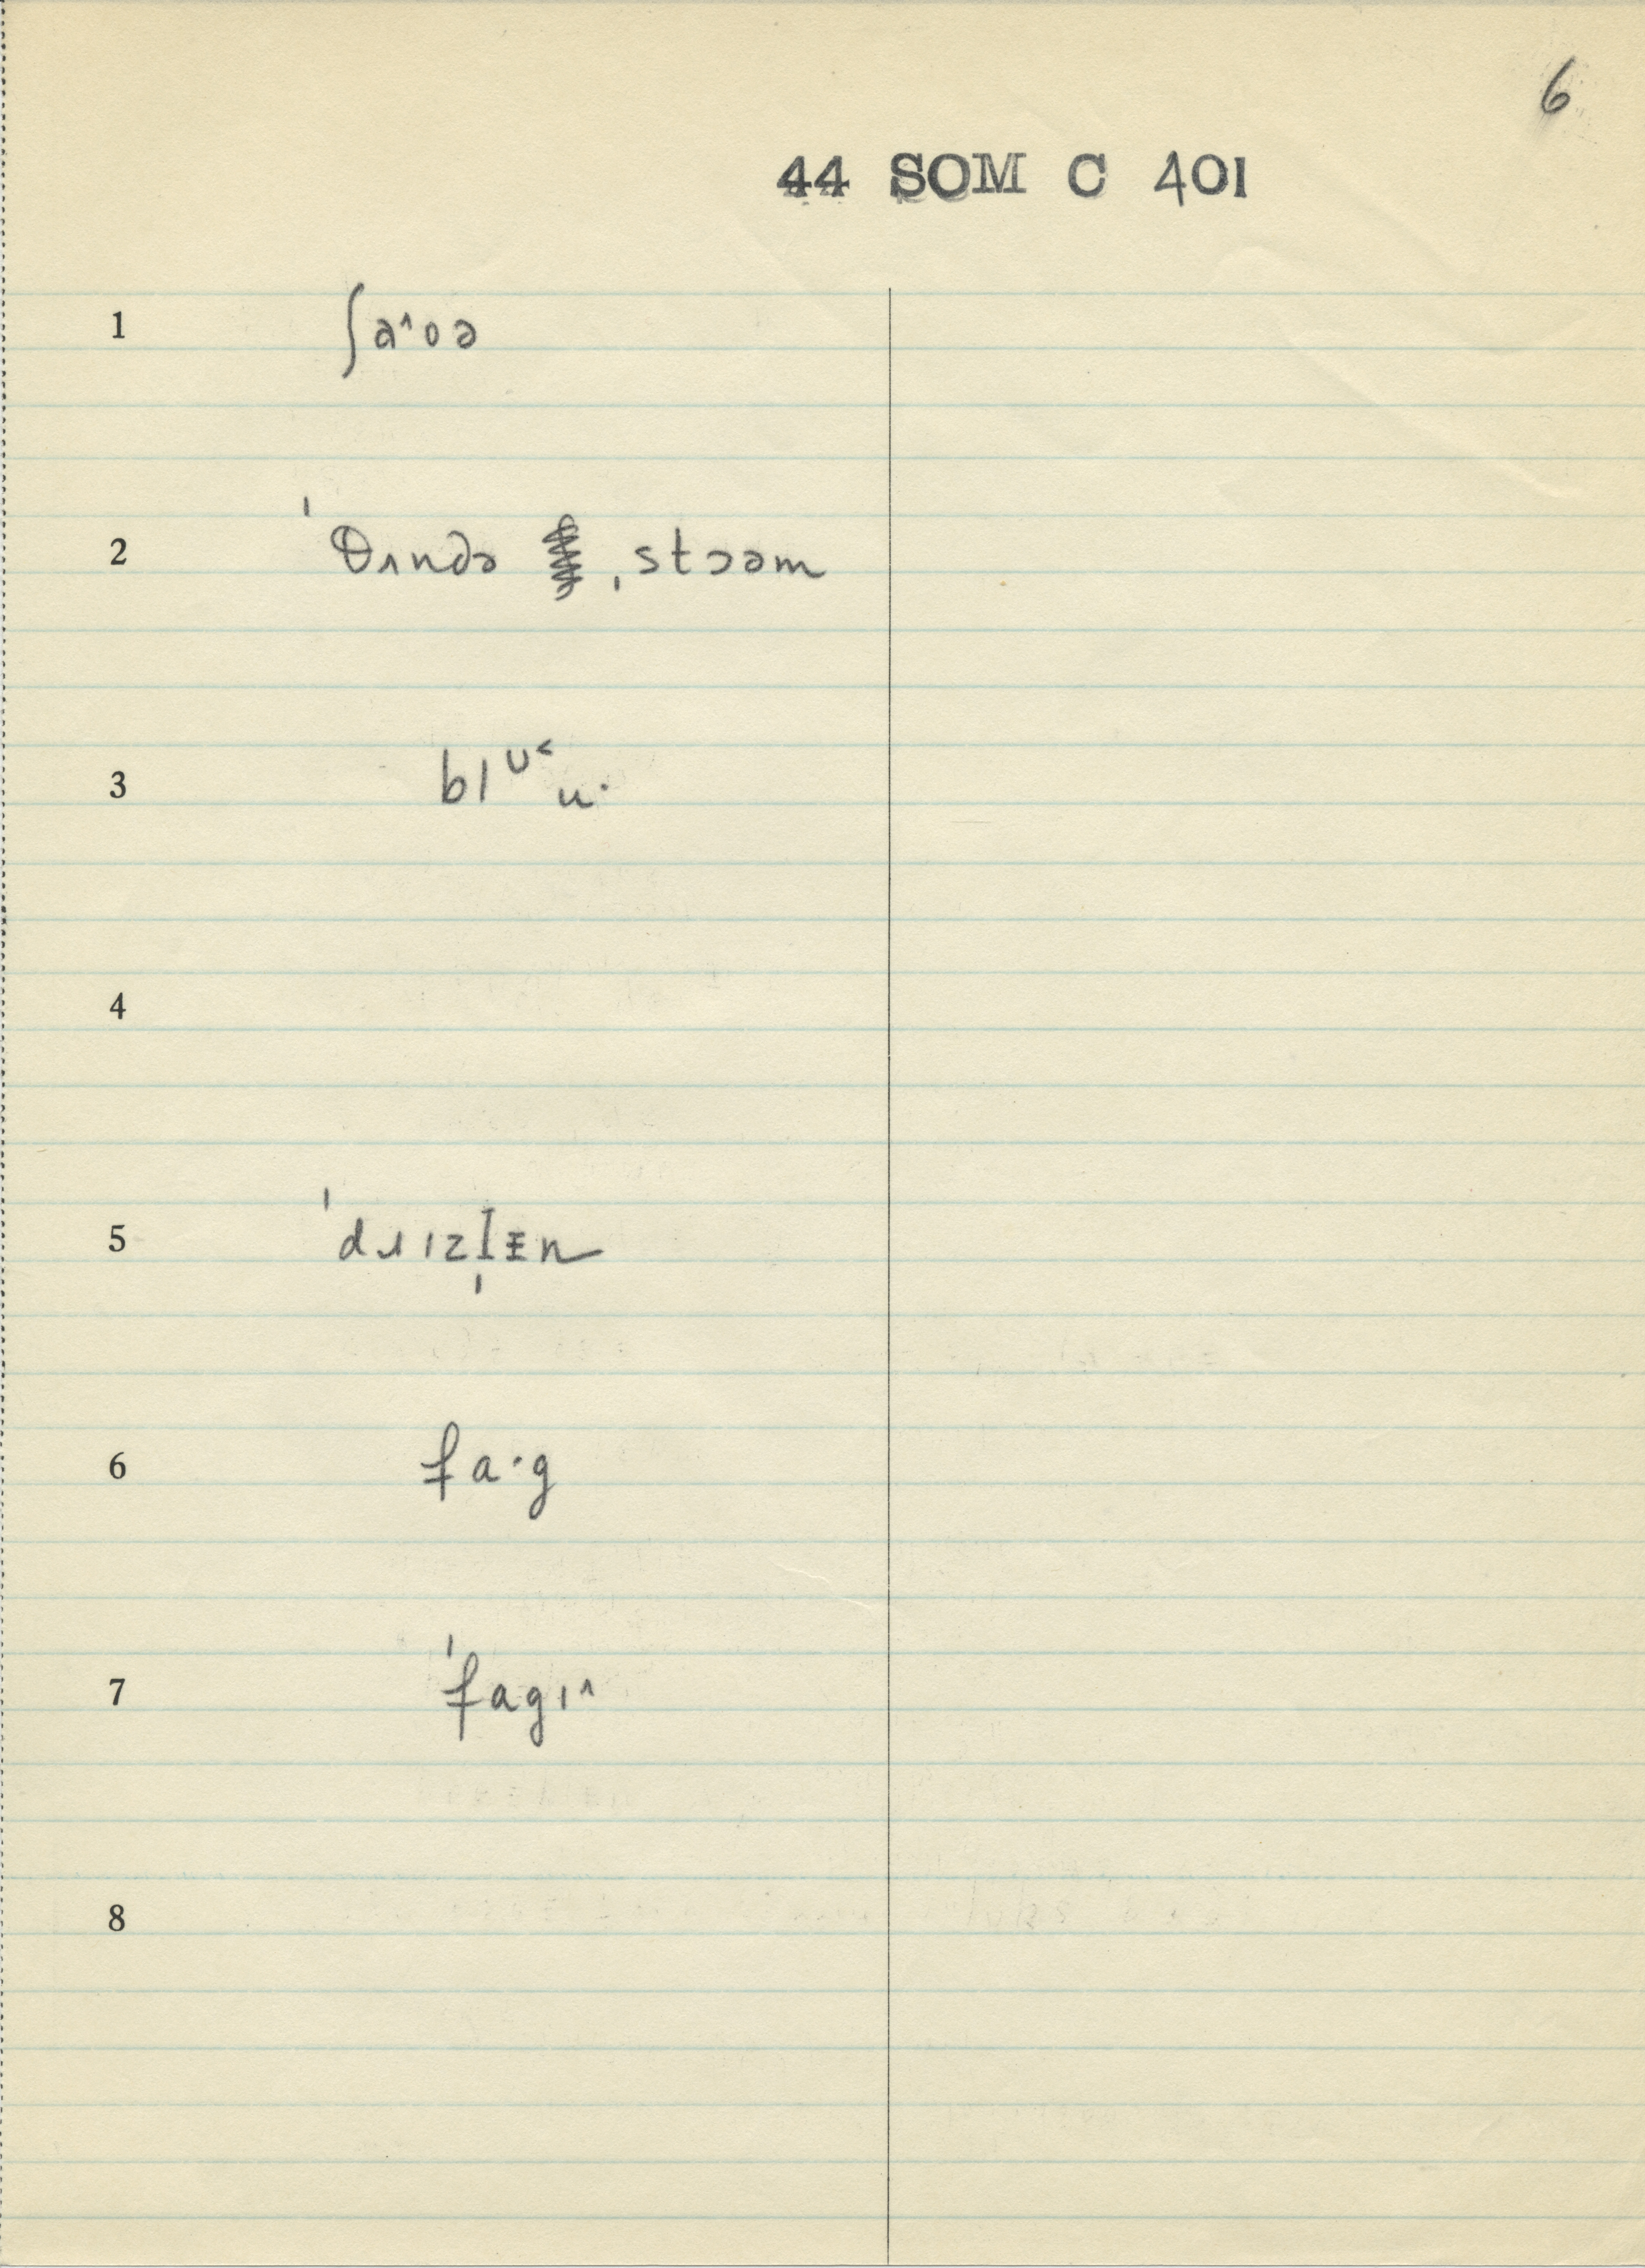 6
44 SOM C 401
1 ʃa˄oə
2 ˈθʌndə ˌstɔəm
3 blᴜ˂u·
4
5 ˈdɹɪzl̩ɪn
6 fa·g
7 ˈfagɪ˄
8